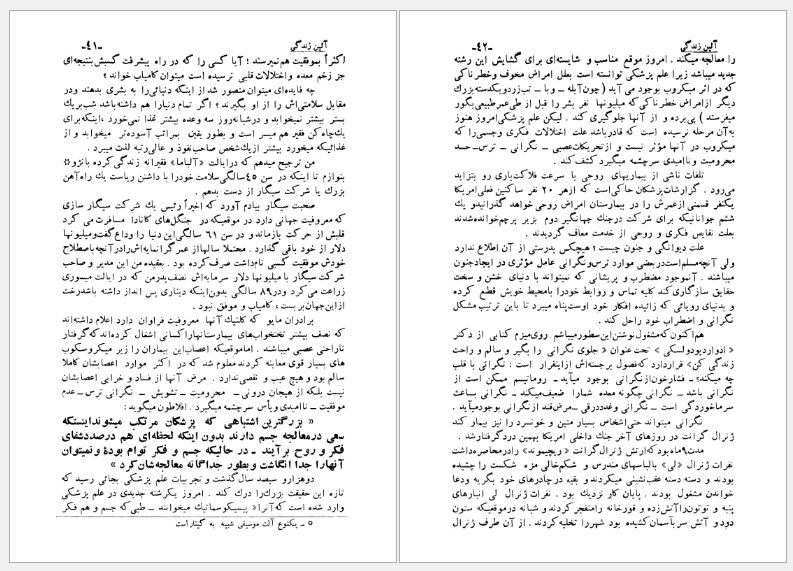 -٤١-
آئین زندگی
اکثراً بموفقیت هم نمیرسند ! آیا کسی را که در راه پیشرفت کسبش نتیجه‌ای
جز زخم معده و اختلالات قلبی نرسیده است میتوان کامیاب خواند ؟
چه فایده‌ای میتوان متصور شد از اینکه دنیائی را به بشری بدهند ودر
مقابل سلامتی‌اش را از او بگیرند ؟ اگر تمام دنیا را هم داشته باشد شب بریك
بستر بیشتر نمیخوابد و در شبانه‌روز سه وعده بیشتر غذا نمی‌خورد ، اینکه برای
یك چاه‌کن فقیر هم میسر است و بطور یقین بمراتب آسوده‌تر میخوابد و از
غذائیکه میخورد بیشتر از یك شخص صاحب نفوذ و عالی‌رتبه لذت میبرد .
من ترجیح میدهم که در ایالت «آلباما» فقیرانه زندگی کرده بانژو¤
بنوازم تا اینکه در سن ٤٥ سالگی سلامت خود را با داشتن ریاست یك راه‌آهن
بزرك یا شرکت سیگار از دست بدهم .
صحبت سیگار بیادم آورد که اخیراً رئیس یك شرکت سیگار سازی
که معروفیت جهانی دارد در موقعیکه در جنگل‌های کانادا مسافرت می کرد
قلبش از حرکت بازماند و در سن ٦١ سالگی این دنیا را وداع گفت و میلیونها
دلار از خود باقی گذارد . محتملا سالها از عمر گرانمایه‌اش را در آنچه باصطلاح
خودش موفقیت کسبی نام داشت صرف کرده بود . بعقیده من این مدیر و صاحب
شرکت سیگار با میلیونها دلار سرمایه‌اش نصف پدرمن که در ایالت میسوری
زراعت می‌کرد و در ٨٩ سالگی بدون اینکه دیناری پس انداز داشته باشد رخت
از این جهان بر بست ، کامیاب و موفق نبود .
برادران مایو که کلنیك آنها معروفیت فراوان دارد اعلام داشته‌اند
که نصف بیشتر تختخواب‌های بیمارستانها را کسانی اشغال کرده‌اند که گرفتار
ناراحتی عصبی میباشند . اما موقعیکه اعصاب این بیماران را زیر میکروسکوب
های بسیار قوی معاینه کردند معلوم شد که در اکثر موارد اعصابشان کاملا
سالم بود و هیچ عیب و نقصی ندارد . مرض آنها از فساد و خرابی اعصابشان
نیست بلکه از هیجان درونی ــ محرومیت ــ تشویش ــ نگرانی ترس ــ عدم
موفقیت ــ ناامیدی و یأس سرچشمه میگیرد . افلاطون میگوید :
« بزرگترین اشتباهی که پزشکان مرتکب میشوند اینستکه
سعی در معالجه جسم دارند بدون اینکه لحظه‌ای هم درصدد شفای
فکر و روح برآیند . در حالیکه جسم و فکر توام بوده و نمیتوان
آنها را جدا انگاشت و بطور جداگانه معالجه‌شان کرد »
دوهزار و سیصد سال گذشت و تجربیات علم پزشکی بجائی رسید که
تازه این حقیقت بزرك را درك کند . امروز یکرشته جدیدی در علم پزشکی
وارد شده است که آنرا « پسیکوسماتیك میخوانند ــ طبی که جسم و هم فکر
¤ ــ یکنوع آلت موسیقی شبیه به گیتار است
-٤٢-
آئین زندگی
را معالجه میکند . امروز موقع مناسب و شایسته‌ای برای گشایش این رشته
جدید میباشد زیرا علم پزشکی توانسته است بعلل امراض مخوف و خطرناکی
که در اثر میکروب بوجود می آید (چون آبله ــ وبا ــ تب زرد و یکدسته بزرك
دیگر از امراض خطرناکی که میلیونها نفر بشر را قبل از طی عمر طبیعی بگور
میفرستد ) پی برده و از آنها جلوگیری کند . لیکن علم پزشکی امروز هنوز
به آن مرحله نرسیده است که قادر باشد علت اختلالات فکری و جسمی را که
میکروب در آنها مؤثر نیست و از تحریکات عصبی ــ نگرانی ــ ترس ــ حسد
محرومیت و ناامیدی سرچشمه میگیرد کشف کند .
تلفات ناشی از بیماریهای روحی با سرعت فلاکت‌باری رو بتزاید
می‌رود . گزارشات پزشکان حاکی است که از هر ٢٠ نفر ساکنین فعلی امریکا
یکنفر قسمتی از عمرش را در بیمارستان امراض روحی خواهد گذرانید و یك
ششم جوانانیکه برای شرکت در جنك جهانگیر دوم بزیر پرچم خوانده شدند
بعلت نقایص فکری و روحی از خدمت معاف گردیدند .
علت دیوانگی و جنون چیست ؟ هیچکس بدرستی از آن اطلاع ندارد
ولی آنچه مسلم است در بعضی موارد ترس و نگرانی عامل مؤثری در ایجاد جنون
میباشند . آنموجود مضطرب و پریشانی که نمیتواند با دنیای خشن و سخت
حقایق سازگاری کند کلیه تماس و روابط خود را با محیط خویش قطع کرده
و بدنیای رویائی که زائیده افکار خود اوست پناه میبرد تا باین ترتیب مشکل
نگرانی و اضطراب خود را حل کند .
هم اکنون که مشغول نوشتن این سطور میباشم روی میزم کتابی از دکتر
« ادوارد پودولسکی » تحت عنوان « جلوی نگرانی را بگیر و سالم و راحت
زندگی کن» قرار دارد که فصول برجسته‌اش از اینقرار است : نگرانی با قلب
چه میکند؟ ــ فشار خون از نگرانی بوجود میآید ــ روماتیسم ممکن است از
نگرانی باشد ــ نگرانی چگونه معده شما را ضعیف میکند ــ نگرانی باعث
سرماخوردگی است ــ نگرانی و غده درقی ــ مرض قند از نگرانی بوجود میآید .
نگرانی میتواند حتی اشخاص بسیار متین و خونسرد را نیز بیمار کند
ژنرال گرانت در روزهای آخر جنك داخلی امریکا بهمین درد گرفتار شد .
مدت ٩ ماه بود که ارتش ژنرال گرانت « ریچیموند» را در محاصره داشت
نفرات ژنرال «لی» بالباسهای مندرس و شکم خالی مزه شکست را چشیده
بودند و دسته دسته عقب‌نشینی میکردند و بقیه در چادرهای خود بگریه و دعا
خواندن مشغول بودند . پایان کار نزدیك بود . نفرات ژنرال لی انبارهای
پنبه و توتون را آتش زده و قورخانه را منفجر کردند و شبانه در موقعیکه ستون
دود و آتش سر بآسمان کشیده بود شهر را تخلیه کردند . از آن طرف ژنرال